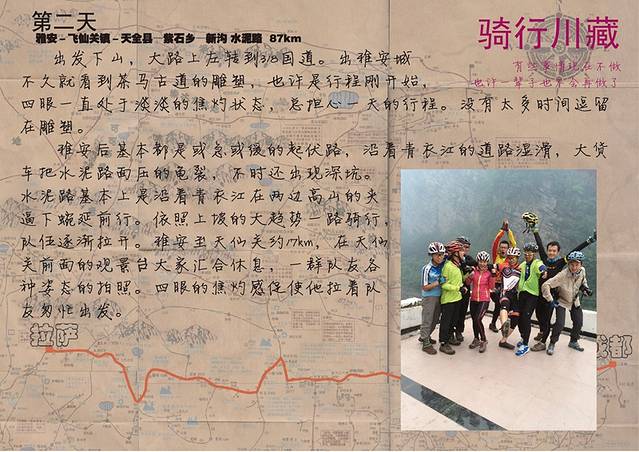 第二天
雅安－飞仙关镇－天全县－紫石乡－新沟 水泥路 87km
骑行川藏
有些事情现在不做
也许一辈子也不会再做了
出发下山，大路上左转到318国道。出雅安城
不久就看到茶马古道的雕塑，也许是行程刚开始，
四眼一直处于淡淡的焦灼状态，总担心一天的行程。没有太多时间逗留
在雕塑。
雅安后基本都是或急或缓的起伏路，沿着青衣江的道路湿滑，大货
车把水泥路面压的龟裂，不时还出现深坑。
水泥路基本上是沿着青衣江在两边高山的夹
逼下蜿延前行。依照上坡的大趋势一路骑行，
队伍逐渐拉开。雅安至天仙关约17km，在天仙
关前面的观景台大家汇合休息，一群队友各
种姿态的拍照。四眼的焦灼感促使他拉着队
友匆忙出发。
拉萨
成都